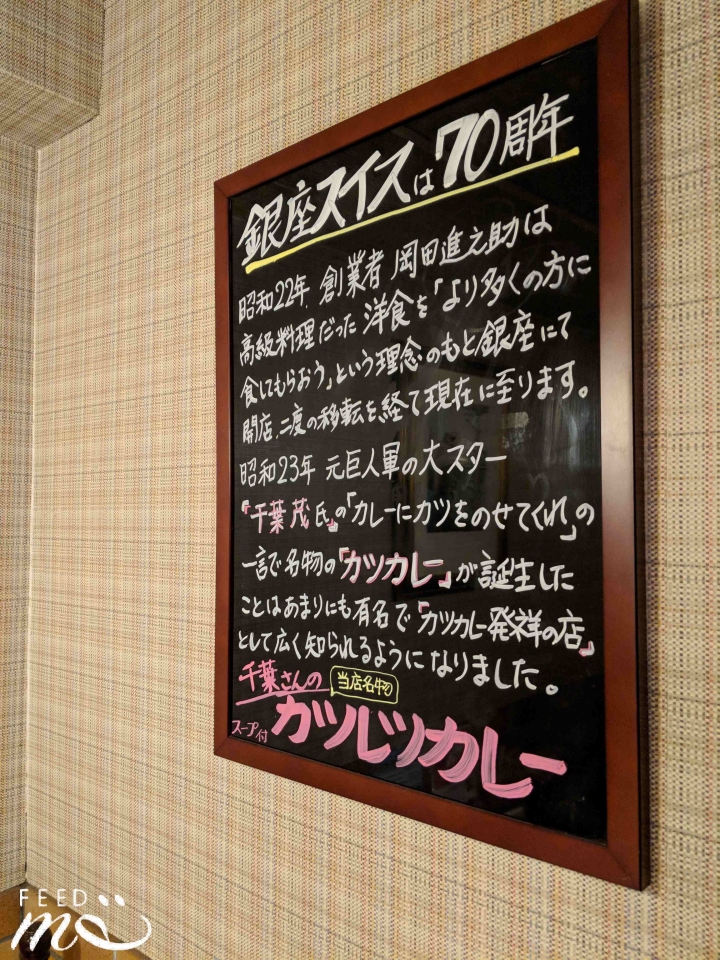 銀座スイスは70周年
昭和22年、創業者 岡田進之助は
高級料理だった洋食を「より多くの方に
食してもらおう」という理念のもと銀座にて
開店、二度の移転を経て現在に至ります。
昭和23年 元巨人軍の大スター
『千葉茂氏』の「カレーにカツをのせてくれ」の
一言で名物の『カツカレー』が誕生した
ことはあまりにも有名で『カツカレー発祥の店』
として広く知られるようになりました。
千葉さんの 当店名物
スープ付 カツレツカレー
FEED
me